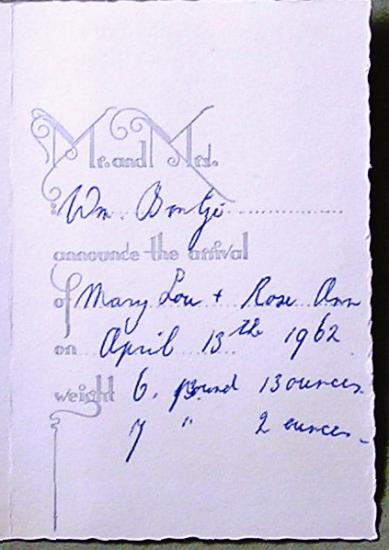 Mr. and Mrs.
Wm. Bontje
announce the arrival
of Mary Lou + Rose Ann
on April 13th 1962
weight 6. pound 13 ounces
7 " 2 ounces